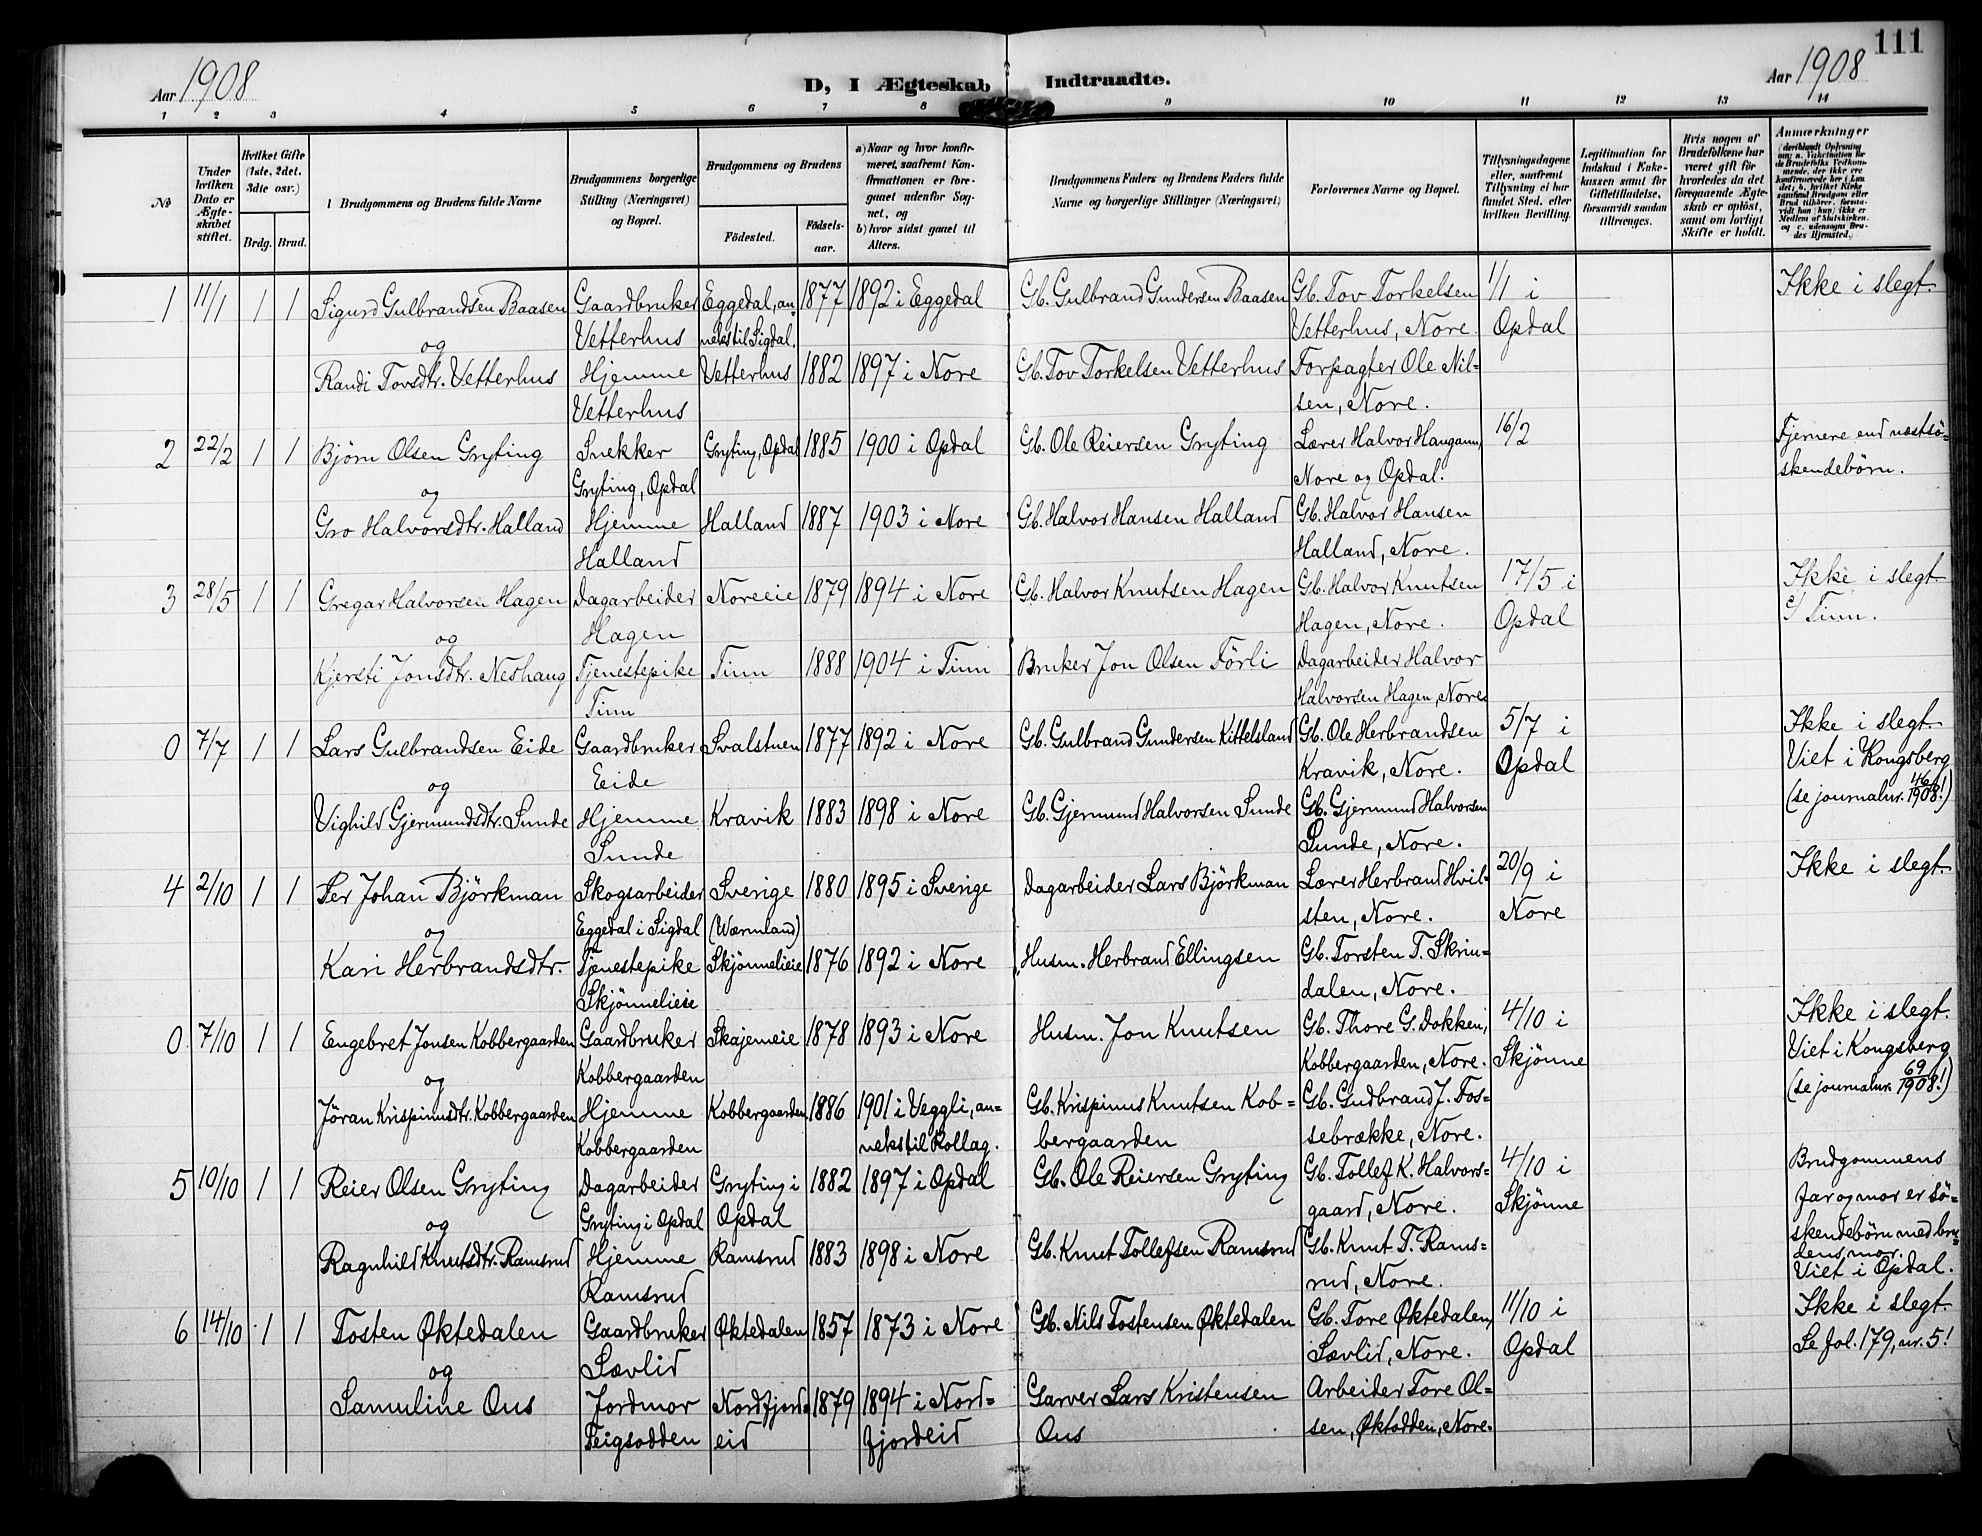 111
Aar 1908
D, I Ægteskab Indtraadte.
Aar 1908
1 2 3 4 5 6 7 8 9 10 11 12 13 14
No
Under hvilken Dato er Ægteskabet stiftet.
Hvilket Gifte (1ste, 2det, 3die osv.)
Brdg. Brud.
Brudgommens og Brudens fulde Navne
Brudgommens borgerlige Stilling (Næringsvei) og Bopæl.
Brudgommens og Brudens
Fødested.
Fødselsaar.
a) Naar og hvor konfirmeret, saafremt Konfirmationen er foregaaet udenfor Sognet, og
b) hvor sidst gaaet til Alters.
Brudgommens Faders og Brudens Faders fulde Navne og borgerlige Stillinger (Næringsvei)
Forlovernes Navne og Bopæl.
Tillysningsdagene eller, saafremt Tillysning ei har fundet Sted, efter hvilken Bevilling.
Legitimation for Indskud i Enkekassen samt for Giftetilladelse, forsaavidt saadan tiltrænges.
Hvis nogen af Brudefolkene har været gift før hvorledes da det foregaaende Ægteskab er opløst, samt om lovligt Skifte er holdt.
Anmærkninger
1 11/1 1 1 Sigurd Gulbrandsen Baasen Gaardbruker Eggedal, an- 1877 1892 i Eggedal Gb. Gulbrand Gundersen Baasen Gb. Tov Torkelsen 1/1 i Ikke i slegt.
og Vetterhus neks til Sigdal. Vetterhus, Nore. Opdal
Randi Tovsdtr. Vetterhus Hjemme Vetterhus 1882 1897 i Nore Gb. Tov Torkelsen Vetterhus Forpagter Ole Nil-
Vetterhus sen, Nore.
2 22/2 1 1 Bjørn Olsen Gryting Snekker Gryting, Opdal 1885 1900 i Opdal Gb. Ole Reiersen Gryting Lærer Halvor Haugann, 16/2 Fjernere end næstsø-
og Gryting, Opdal Nore og Opdal. skendebørn.
Gro Halvorsdtr. Halland Hjemme Halland 1887 1903 i Nore Gb. Halvor Hansen Halland Gb. Halvor Hansen
Halland Halland, Nore.
3 28/5 1 1 Gregar Halvorsen Hagen Dagarbeider Noreeie 1879 1894 i Nore Gb. Halvor Knutsen Hagen Gb. Halvor Knutsen 17/5 i Ikke i slegt.
og Hagen Hagen, Nore. Opdal c/ Tinn.
Kjersti Jonsdtr. Neshaug Tjenestepike Tinn 1888 1904 i Tinn Bruker Jon Olsen Førli Dagarbeider Halvor
Tinn Halvorsen Hagen, Nore.
0 7/7 1 1 Lars Gulbrandsen Eide Gaardbruker Svalstuen 1877 1892 i Nore Gb. Gulbrand Gundersen Kittelsland Gb. Ole Herbrandsen 5/7 i Ikke i slegt.
og Eide Kravik, Nore. Opdal Viet i Kongsberg
Vighild Gjermundsdtr. Sunde Hjemme Kravik 1883 1898 i Nore Gb. Gjermund Halvorsen Sunde Gb. Gjermund Halvorsen (se journalnr. 46/1908!)
Sunde Sunde, Nore.
4 2/10 1 1 Per Johan Björkman Skogsarbeider Sverige 1880 1895 i Sverige Dagarbeider Lars Björkman Lærer Herbrand Hvil- 20/9 i Ikke i slegt.
og Eggedal i Sigdal (Wærmland) sten, Nore. Nore
Kari Herbrandsdtr. Tjenestepike Skjønnelieie 1876 1892 i Nore Husm. Herbrand Ellingsen Gb. Torsten T. Skrin-
Skjønnelieie dalen, Nore.
0 7/10 1 1 Engebret Jonsen Kobbergaarden Gaardbruker Skajemeie 1878 1893 i Nore Husm. Jon Knutsen Gb. Thore G. Dokken, 4/10 i Ikke i slegt.
og Kobbergaarden Kobbergaarden, Nore. Skjønne Viet i Kongsberg
Jöran Krispinusdtr. Kobbergaarden Hjemme Kobbergaarden 1886 1901 i Veggli, an- Gb. Krispinus Knutsen Kob- Gb. Gudbrand J. Fos- (se journalnr. 69/1908!)
Kobbergaarden neks til Rollag. bergaarden sebrække, Nore.
5 10/10 1 1 Reier Olsen Gryting Dagarbeider Gryting i 1882 1897 i Opdal Gb. Ole Reiersen Gryting Gb. Tollef K. Halvors- 4/10 i Brudgommens
og Gryting i Opdal Opdal gaard, Nore. Skjønne far og mor er sø-
Ragnhild Knutsdtr. Ramsrud Hjemme Ramsrud 1883 1898 i Nore Gb. Knut Tollefsen Ramsrud Gb. Knut T. Rams- skendebørn med bru-
dens mor.
Ramsrud rud, Nore. Viet i Opdal.
6 14/10 1 1 Tosten Øktedalen Gaardbruker Øktedalen 1857 1873 i Nore Gb. Nils Tostensen Øktedalen Gb. Tore Øktedalen, 11/10 i Ikke i slegt.
og Sævlid Sævlid, Nore. Opdal Se fol. 179, nr. 5!
Samuline Ous Jordmor Nordfjord- 1879 1894 i Nord- Garver Lars Kristensen Arbeider Tore Ol-
Feigsodden eid fjordeid Ous sen, Øktodden, Nore.